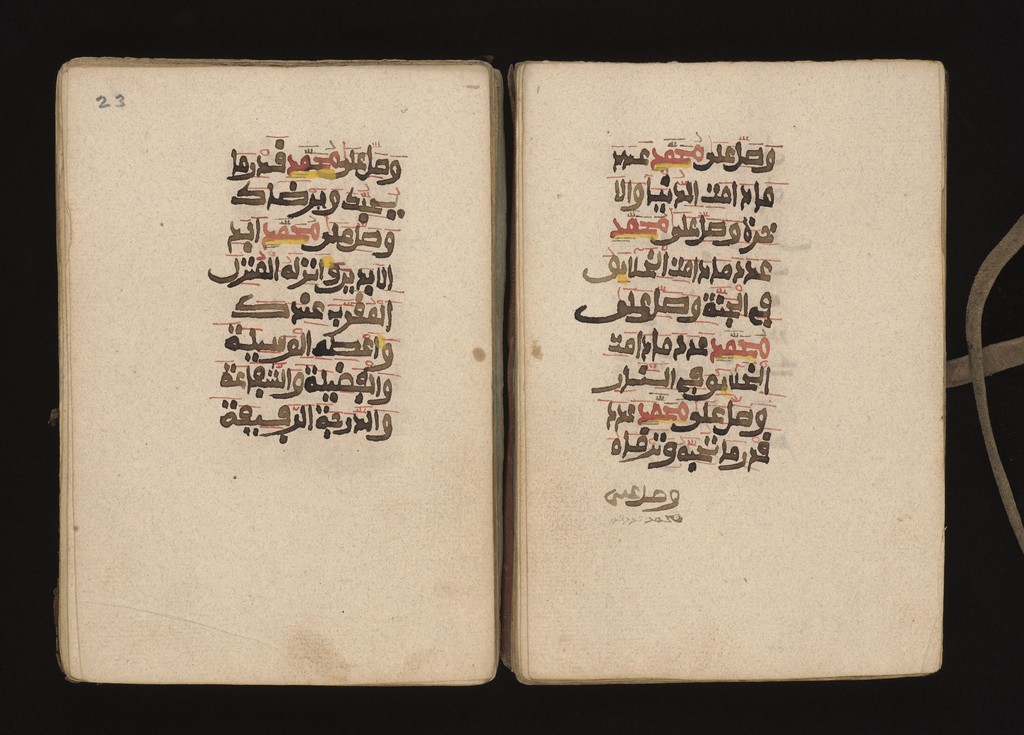 وصل على محمد عدد
ما دامت الدنيا والا
خرة وصل على محمد
عدد ما دامت الخلايق
في الجنة وصل على
محمد عدد ما دامت
الخلايق في النار
وصل على محمد عدد
قدر ما تحبه وترضاه
وصل على
محمد
23
وصل على محمد قدر ما
يحبك ويرضاك
وصل على محمد ابد
الابدين وانزله المنزل
المقرب عندك
واعطه الوسيلة
والفضيلة والشفاعة
والدرجة الرفيعة